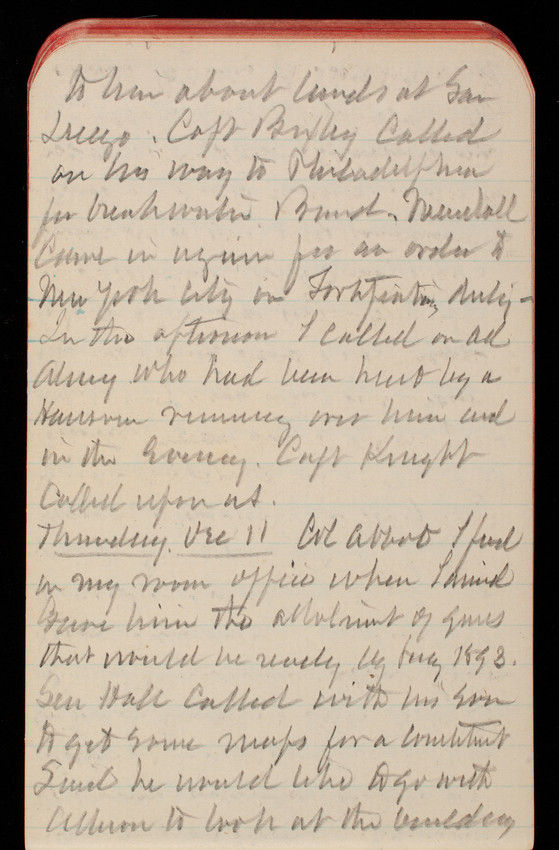 to him about lands at San
Diego. Capt Bixby called
on his way to Philadelphia
for breakwater Board. Mendell
came in again for an order to
New York City on Fortification duty -
In the afternoon I called on
Almy who had been hurt by a
Hansom running over him and
in the Evening. Capt Knight
called upon us.
Thursday, Dec 11 Col Abbot I find
in my room office when I arrived
Gave him the allotment of guns
that would be ready by July 1893.
Gen Hall called with his son
to get some maps for a
Said he would like to go with
to look at the building